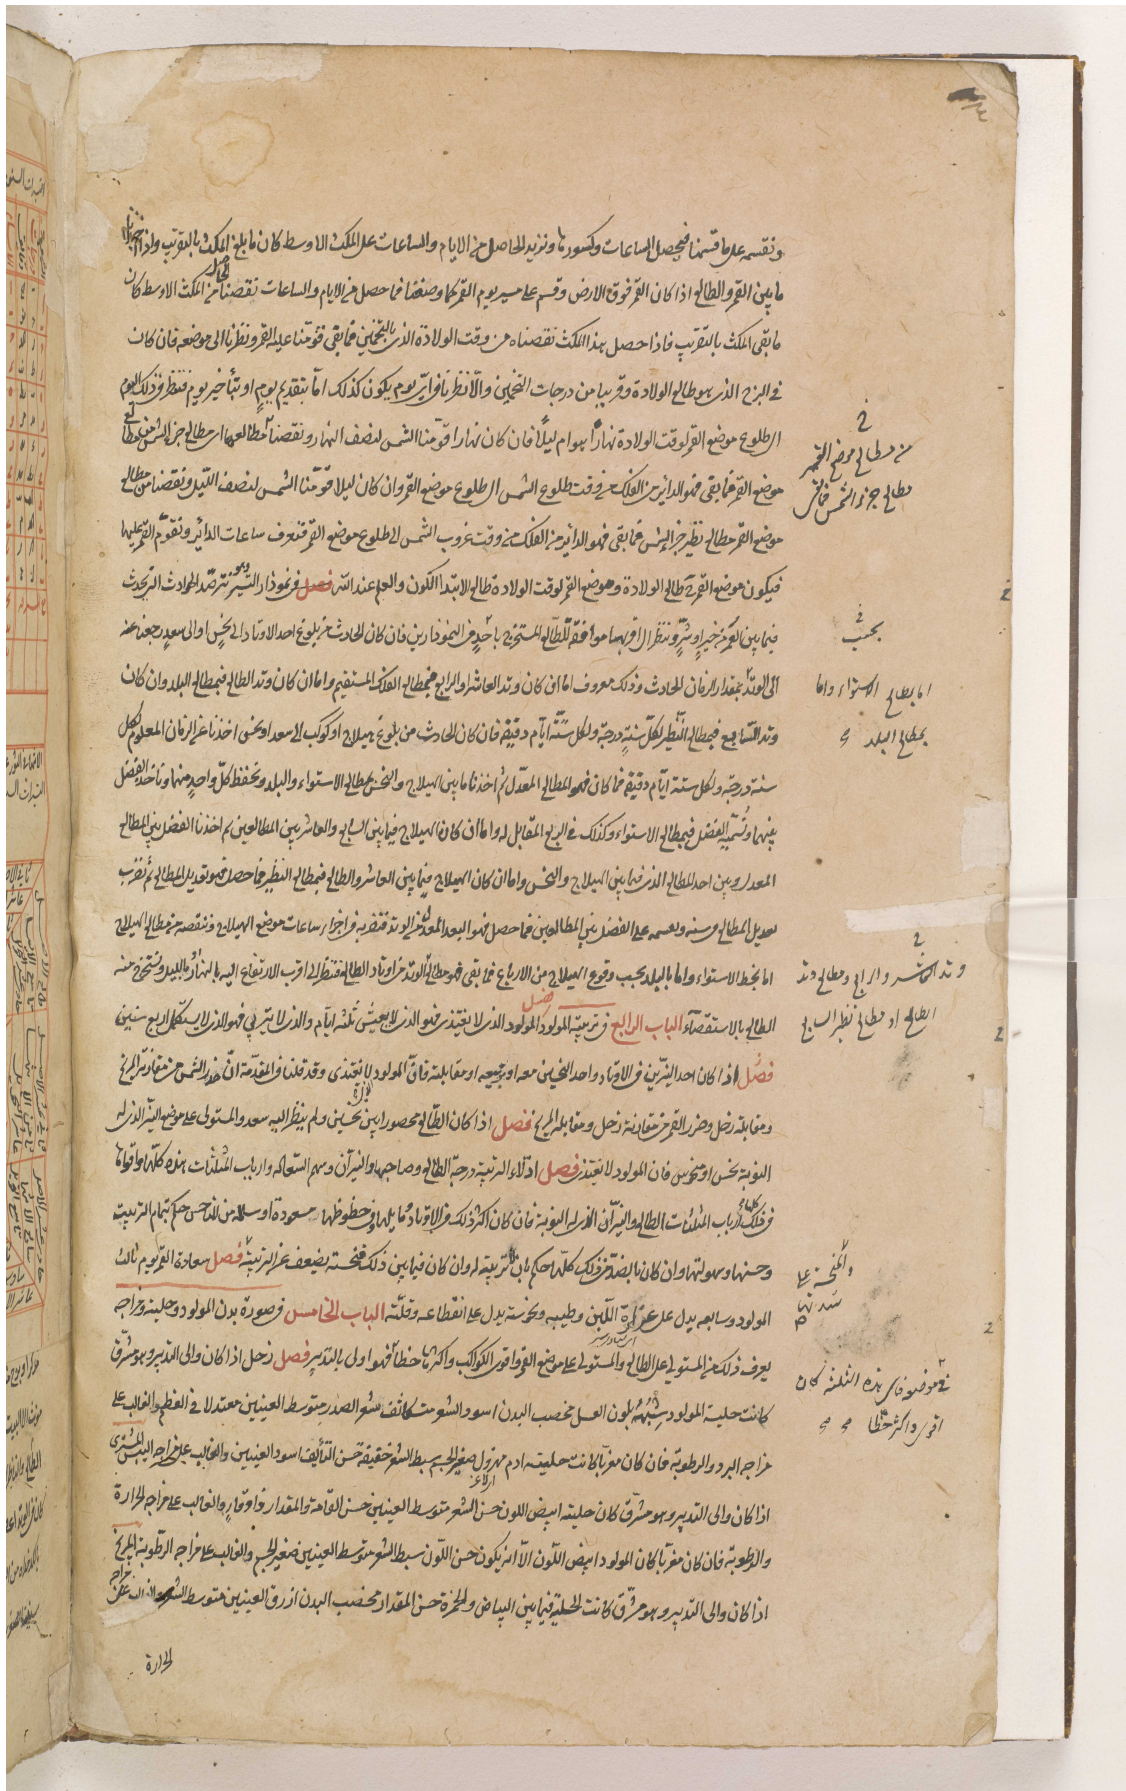 ونقسمه على ما قسمنا فيحصل الساعات وكسورها ونزيد الحاصل من الايام والساعات على المكث الاوسط كان ما بلغ المكث بالتقريب واذا اخذنا
ما بين القمر والطالع اذا كان القمر فوق الارض وقسم على مسير يوم القمر كما وصفنا فما حصل من الايام والساعات نقصنا من المكث الاوسط كان
ما بقى المكث بالتقريب فاذا حصل هذا المكث نقصناه من وقت الولادة الذى بالتخمين فما بقى قومنا عليه القمر ونظرنا الى موضعه فان كان
فى البرج الذى هو طالع الولادة وقريبا من درجات التخمين والا نظرنا فى اى يوم يكون كذلك اما بتقديم يوم او بتأخير يوم فننظر فى ذلك اليوم
الى طلوع موضع القمر لوقت الولادة نهارا هو ام ليلا فان كان نهارا قومنا الشمس لنصف النهار ونقصنا مطالعها اى مطالع جزء الشمس من مطالع
موضع القمر فما بقى فهو الدائر من الفلك من وقت طلوع الشمس الى طلوع موضع القمر وان كان ليلا قومنا الشمس لنصف الليل ونقصنا من مطالع
موضع القمر مطالع نظير جزء الشمس فما بقى فهو الدائر من الفلك من وقت غروب الشمس الى طلوع موضع القمر فنعرف ساعات الدائر ونقوم القمر عليها
فيكون موضع القمر طالع الولادة وموضع القمر لوقت الولادة طالع الابتدا الكون والعلم عند الله فصل فى نموذار التسيير وهو ترصد الحوادث التى تحدث
فيما بين العمر من خير او شر وننظر الى اقربها موافقة للطالع المستخرج باحد فى النموذارين فان كان الحادث من بلوغ احد الاوتاد الى نحس او الى سعد رجعنا عنه
الى الوتد بمقدار الزمان الحادث وذلك معروف اما ان كان وتد العاشر او الرابع فبمطالع الفلك المستقيم واما ان كان وتد الطالع فبمطالع البلد وان كان
وتد السابع فبمطالع النظير لكل سنة درجة ولكل ستة ايام دقيقة فان كان الحادث من بلوغ هيلاج او كوكب الى سعد او نحس اخذنا عن الزمان المعلوم لكل
سنة درجة ولكل ستة ايام دقيقة فما كان فهو المطالع المعدل ثم اخذنا ما بين الهيلاج والنحس بمطالع الاستواء والبلد ونحفظ كل واحد منها ونأخذ الفضل
بينهما ونسميه الفضل فبمطالع الاستواء وكذلك فى الربع المقابل له واما ان كان الهيلاج فيما بين السابع والعاشر بين المطالعين ثم اخذنا الفضل بين المطالع
المعدل وبين احد المطالع الذى فيما بين الهيلاج والنحس واما ان كان الهيلاج فيما بين العاشر والطالع فبمطالع النظير فما حصل فهو تعديل المطالع ثم نضرب
تعديل المطالع فى ستة ونقسمه على الفضل بين المطالعين فما حصل فهو البعد المعدل من الوتد فنضربه فى اجزاء ساعات موضع الهيلاج وننقصه من مطالع الهيلاج
اما بخط الاستواء واما بالبلد بحسب وقوع الهيلاج من الارباع فما بقى فهو مطالع الوتد من اوتاد الطالع فننظر الى اقرب الارتفاع اليه بالنهار او بالليل ونستخرج منه
الطالع بالاستقصاء الباب الرابع فى تربية المولود فصل المولود الذى لا يغتذى فهو الذى لا يعيش ثلثة ايام والذى لا يتربى فهو الذى لا يستكمل اربع سنين
فصل اذا كان احد النيرين فى الاوتاد واحد النحسين معه او بتربيعه او مقابلته فان المولود لا يغتذى وقد قلنا فى المقدمة ان ضرر الشمس من مقارنة المريخ
ومقابلة زحل وضرر القمر من مقارنة زحل ومقابلة المريخ فصل اذا كان الطالع محصورا بين نحسين ولم ينظر اليه سعد والمستولى على موضع النير الذى له
النوبة نحس او منحوس فان المولود لا يغتذى فصل ادلاء التربية درجة الطالع وصاحبها والنيران وسهم السعادة وارباب المثلثات هذه كلها واقواها
فى ذلك كله ارباب المثلثات الطالع والنير الذى له النوبة فان كان اكثر ذلك فى الاوتاد وما يليها وفى حظوظها مسعودة او سالمة من المناحس حكم بتمام التربيت
وحسنها وسهولتها وان كان بالضد من ذلك كلها حكم بان لا تربية له وان كان فيما بين ذلك فنحسته يضعف عن التربية فصل سعادة القمر يوم ثالث
المولود وسابعه يدل على غزارة اللبن وطيبه ونحوسته يدل على انقطاعه وقلته الباب الخامس فى صورة بدن المولود وحليته ومزاجه
يعرف ذلك من المستولى على الطالع والمستولى على موضع القمر واقوى الكواكب واكثرها حظا فهو اولى بالتدبير فصل زحل اذا كان والى التدبير وهو مشرق
كانت حلية المولود شبهة بلون العسل مخصب البدن اسود الشعر متكاثف شعر الصدر متوسط العينين معتدلا فى العظم والغالب على
مزاجه البرد والرطوبة فان كان مغربا كانت حليته ادم مهزول صغير الجسم سبط الشعر خفيفه حسن التأليف اسود العينين والغالب على مزاجه اليبس المشترى
اذا كان والى التدبير وهو مشرق كان حليته ابيض اللون حسن الشعر متوسط العينين حسن القامة والمقدار ذا وقار والغالب على مزاجه الحرارة
والرطوبة فان كان مغربا كان المولود ابيض اللون الا انه يكون حسن اللون سبط الشعر متوسط العينين صغير الجسم والغالب على مزاجه الرطوبة المريخ
اذا كان والى التدبير وهو مشرق كانت الحلية فيما بين البياض والحمرة حسن المقدار مخصب البدن ازرق العينين متوسط الشعر والغالب على مزاجه
الحرارة
من مطالع موضع القمر
مطالع جزء الشمس فما
بحسب
اما بمطالع الاستواء واما
بمطالع البلد
وتد العاشر والرابع ومطالع وتد
الطالع او مطالع نظير السابع
والمنحسة على
فى موضعه فاى هذه الثلثة كان
اقوى واكثر حظا